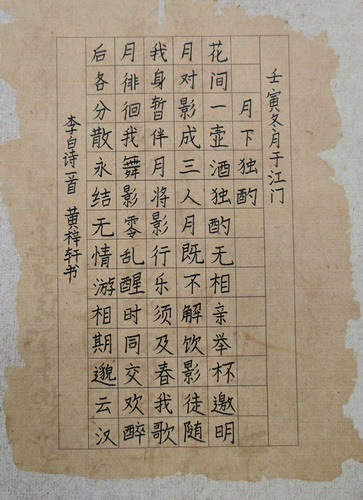 壬寅冬月于江门
月下独酌
花间一壶酒独酌无相亲举杯邀明
月对影成三人月既不解饮影徒随
我身暂伴月将影行乐须及春我歌
月徘徊我舞影零乱醒时同交欢醉
后各分散永结无情游相期邈云汉
李白诗一首 黄梓轩书